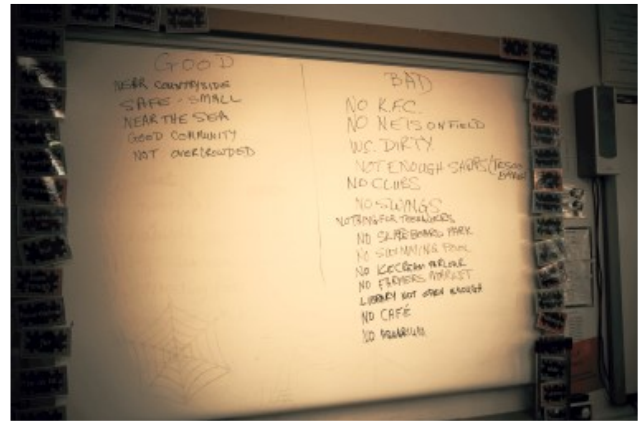 GOOD
NEAR COUNTRYSIDE
SAFE - SMALL
NEAR THE SEA
GOOD COMMUNITY
NOT OVERCROWDED
BAD
NO K.F.C.
NO NETS ON FIELD
W.C. DIRTY
NOT ENOUGH SHOPS (TESCO
NO CLUBS
NO SWINGS
NOTHING FOR TEENAGERS
NO SKATEBOARD PARK
NO SWIMMING POOL
NO ICECREAM PARLOUR
NO FARMERS MARKET
LIBRARY NOT OPEN ENOUGH
NO CAFÉ
NO AQUARIUM